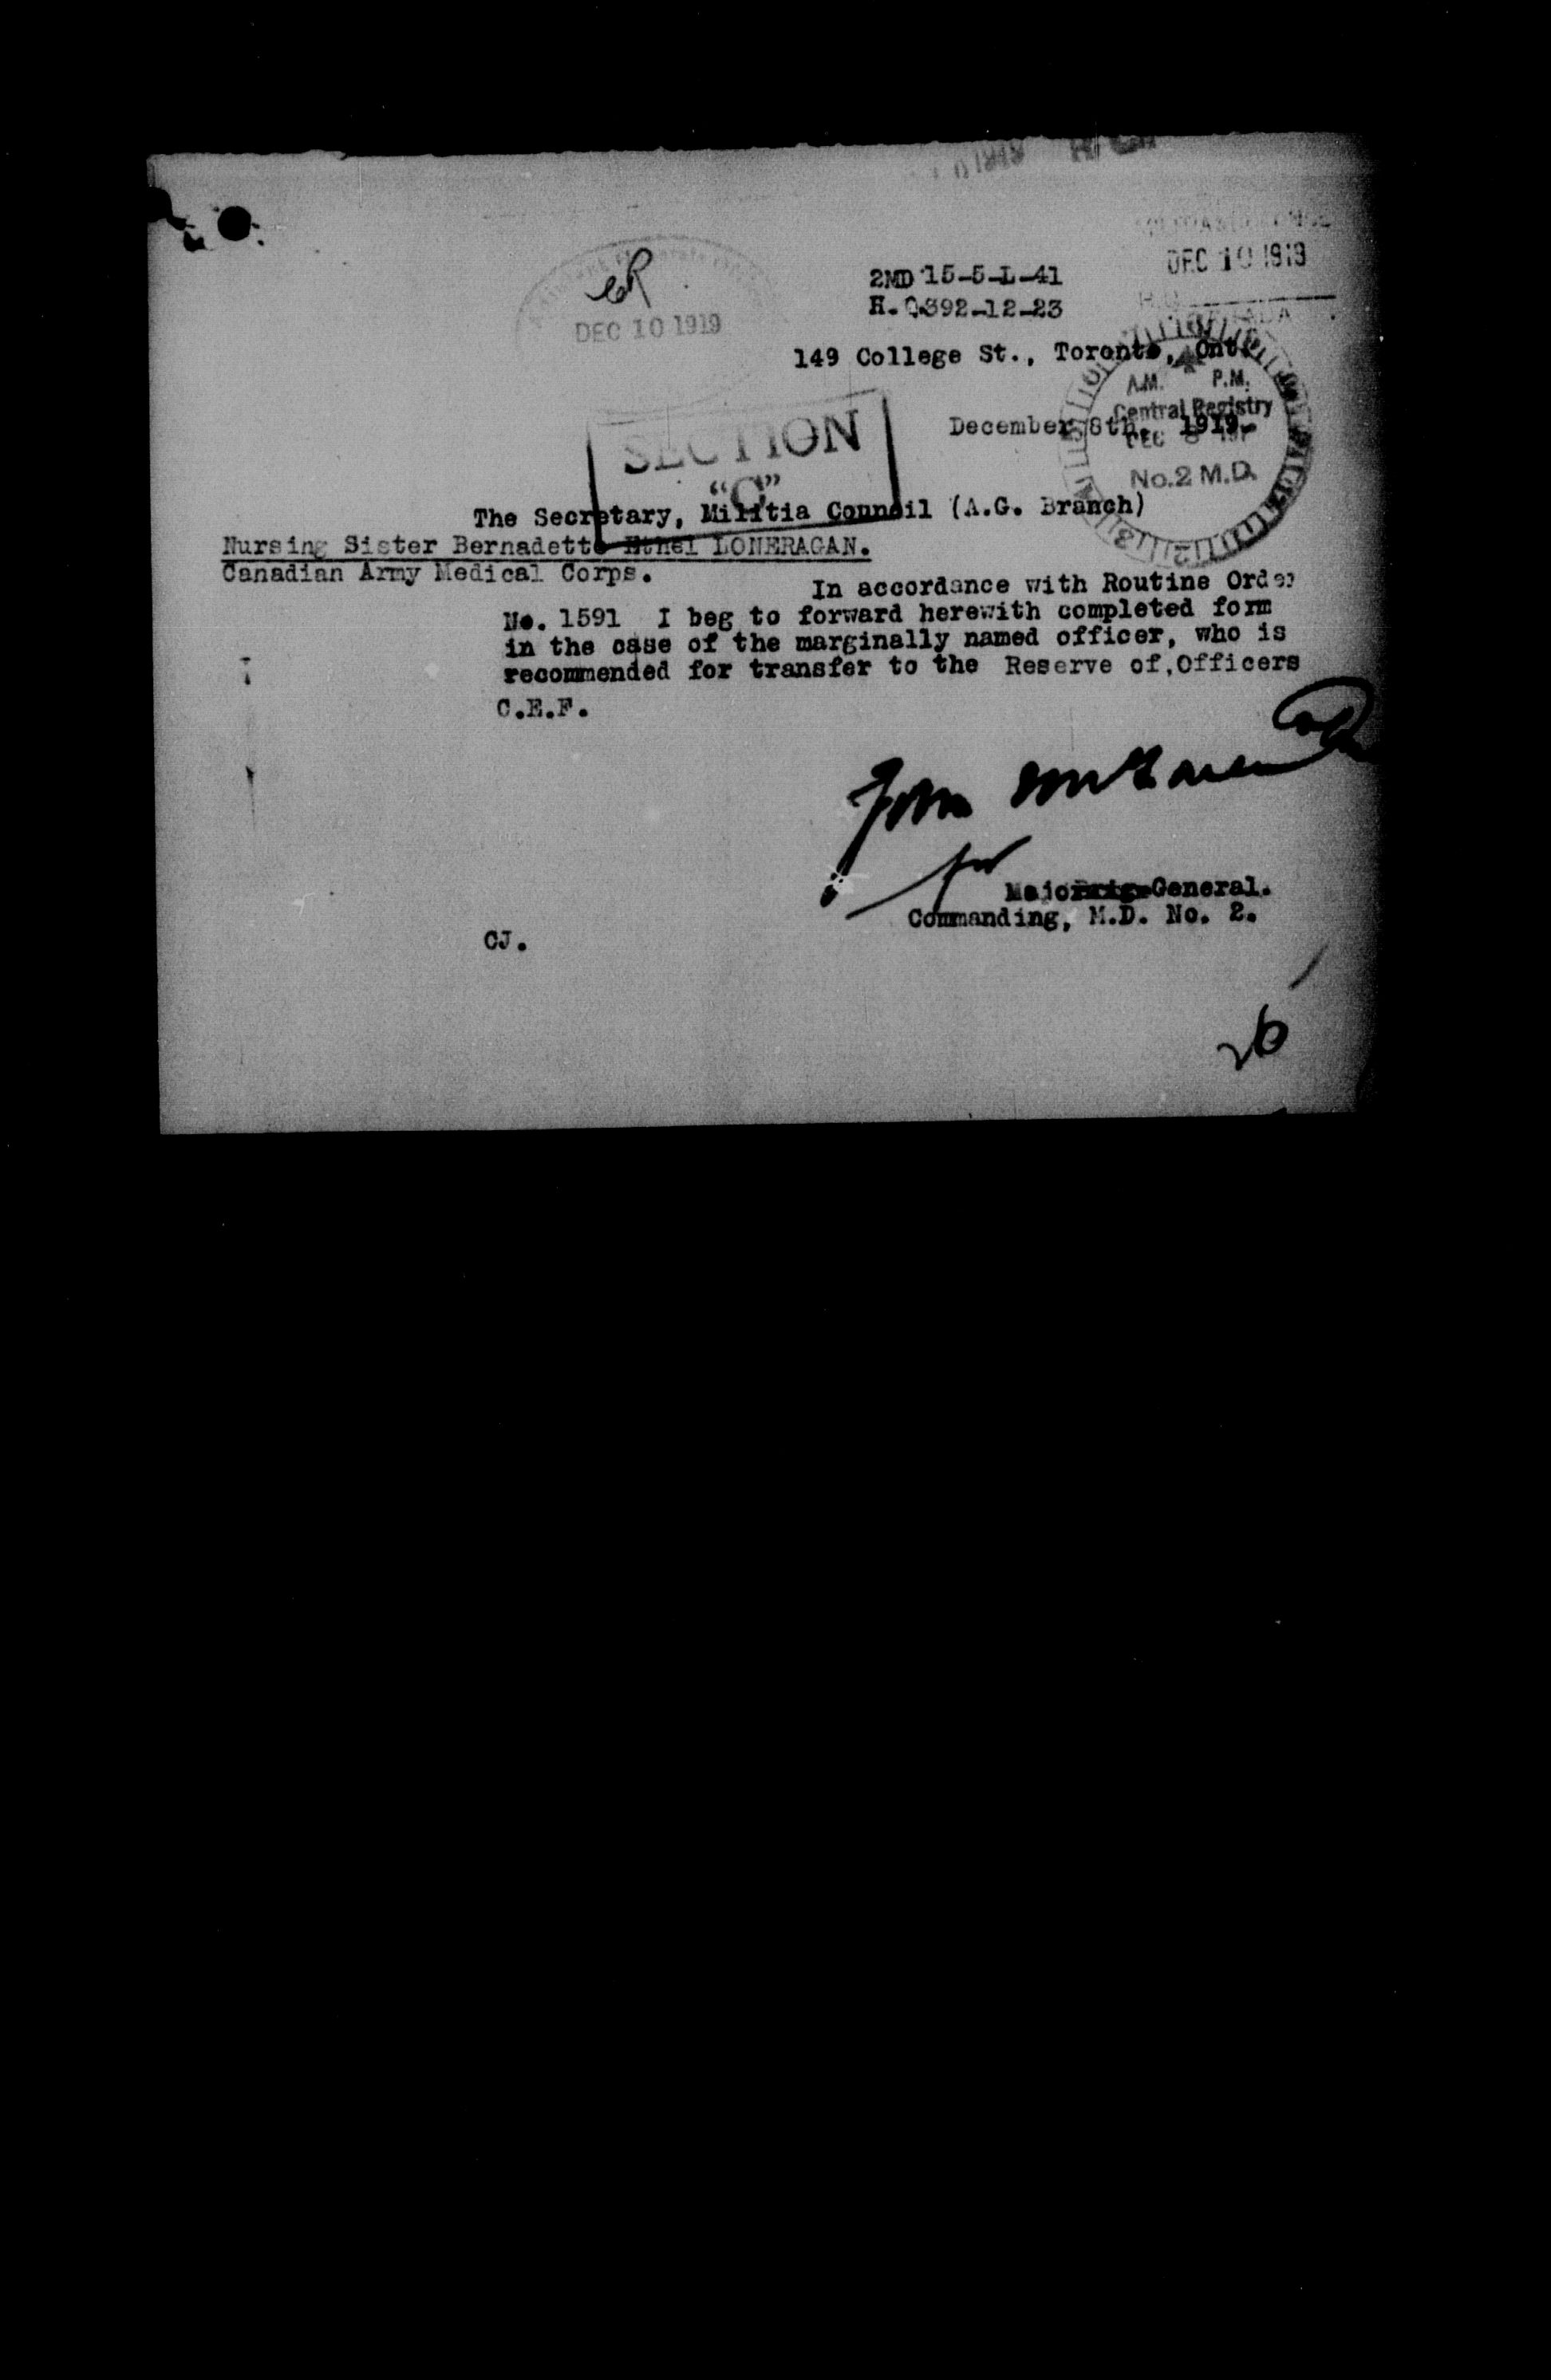 DEC 10 1919
2MD 15-5-L-41
H.Q.392-12-23
DEC 10 1919
149 College St., Toronto, Ont.
A.M. P.M.
Central Registry
DEC 8
No. 2 M.D.
December 8th, 1919.
SECTION
"C"
The Secretary, Militia Council (A.G. Branch)
Nursing Sister Bernadette Ethel LONERAGAN.
Canadian Army Medical Corps.
In accordance with Routine Order
No. 1591 I beg to forward herewith completed form
in the case of the marginally named officer, who is
recommended for transfer to the Reserve of Officers
C.E.F.
for
Major General.
Commanding, M.D. No. 2.
CJ.
26